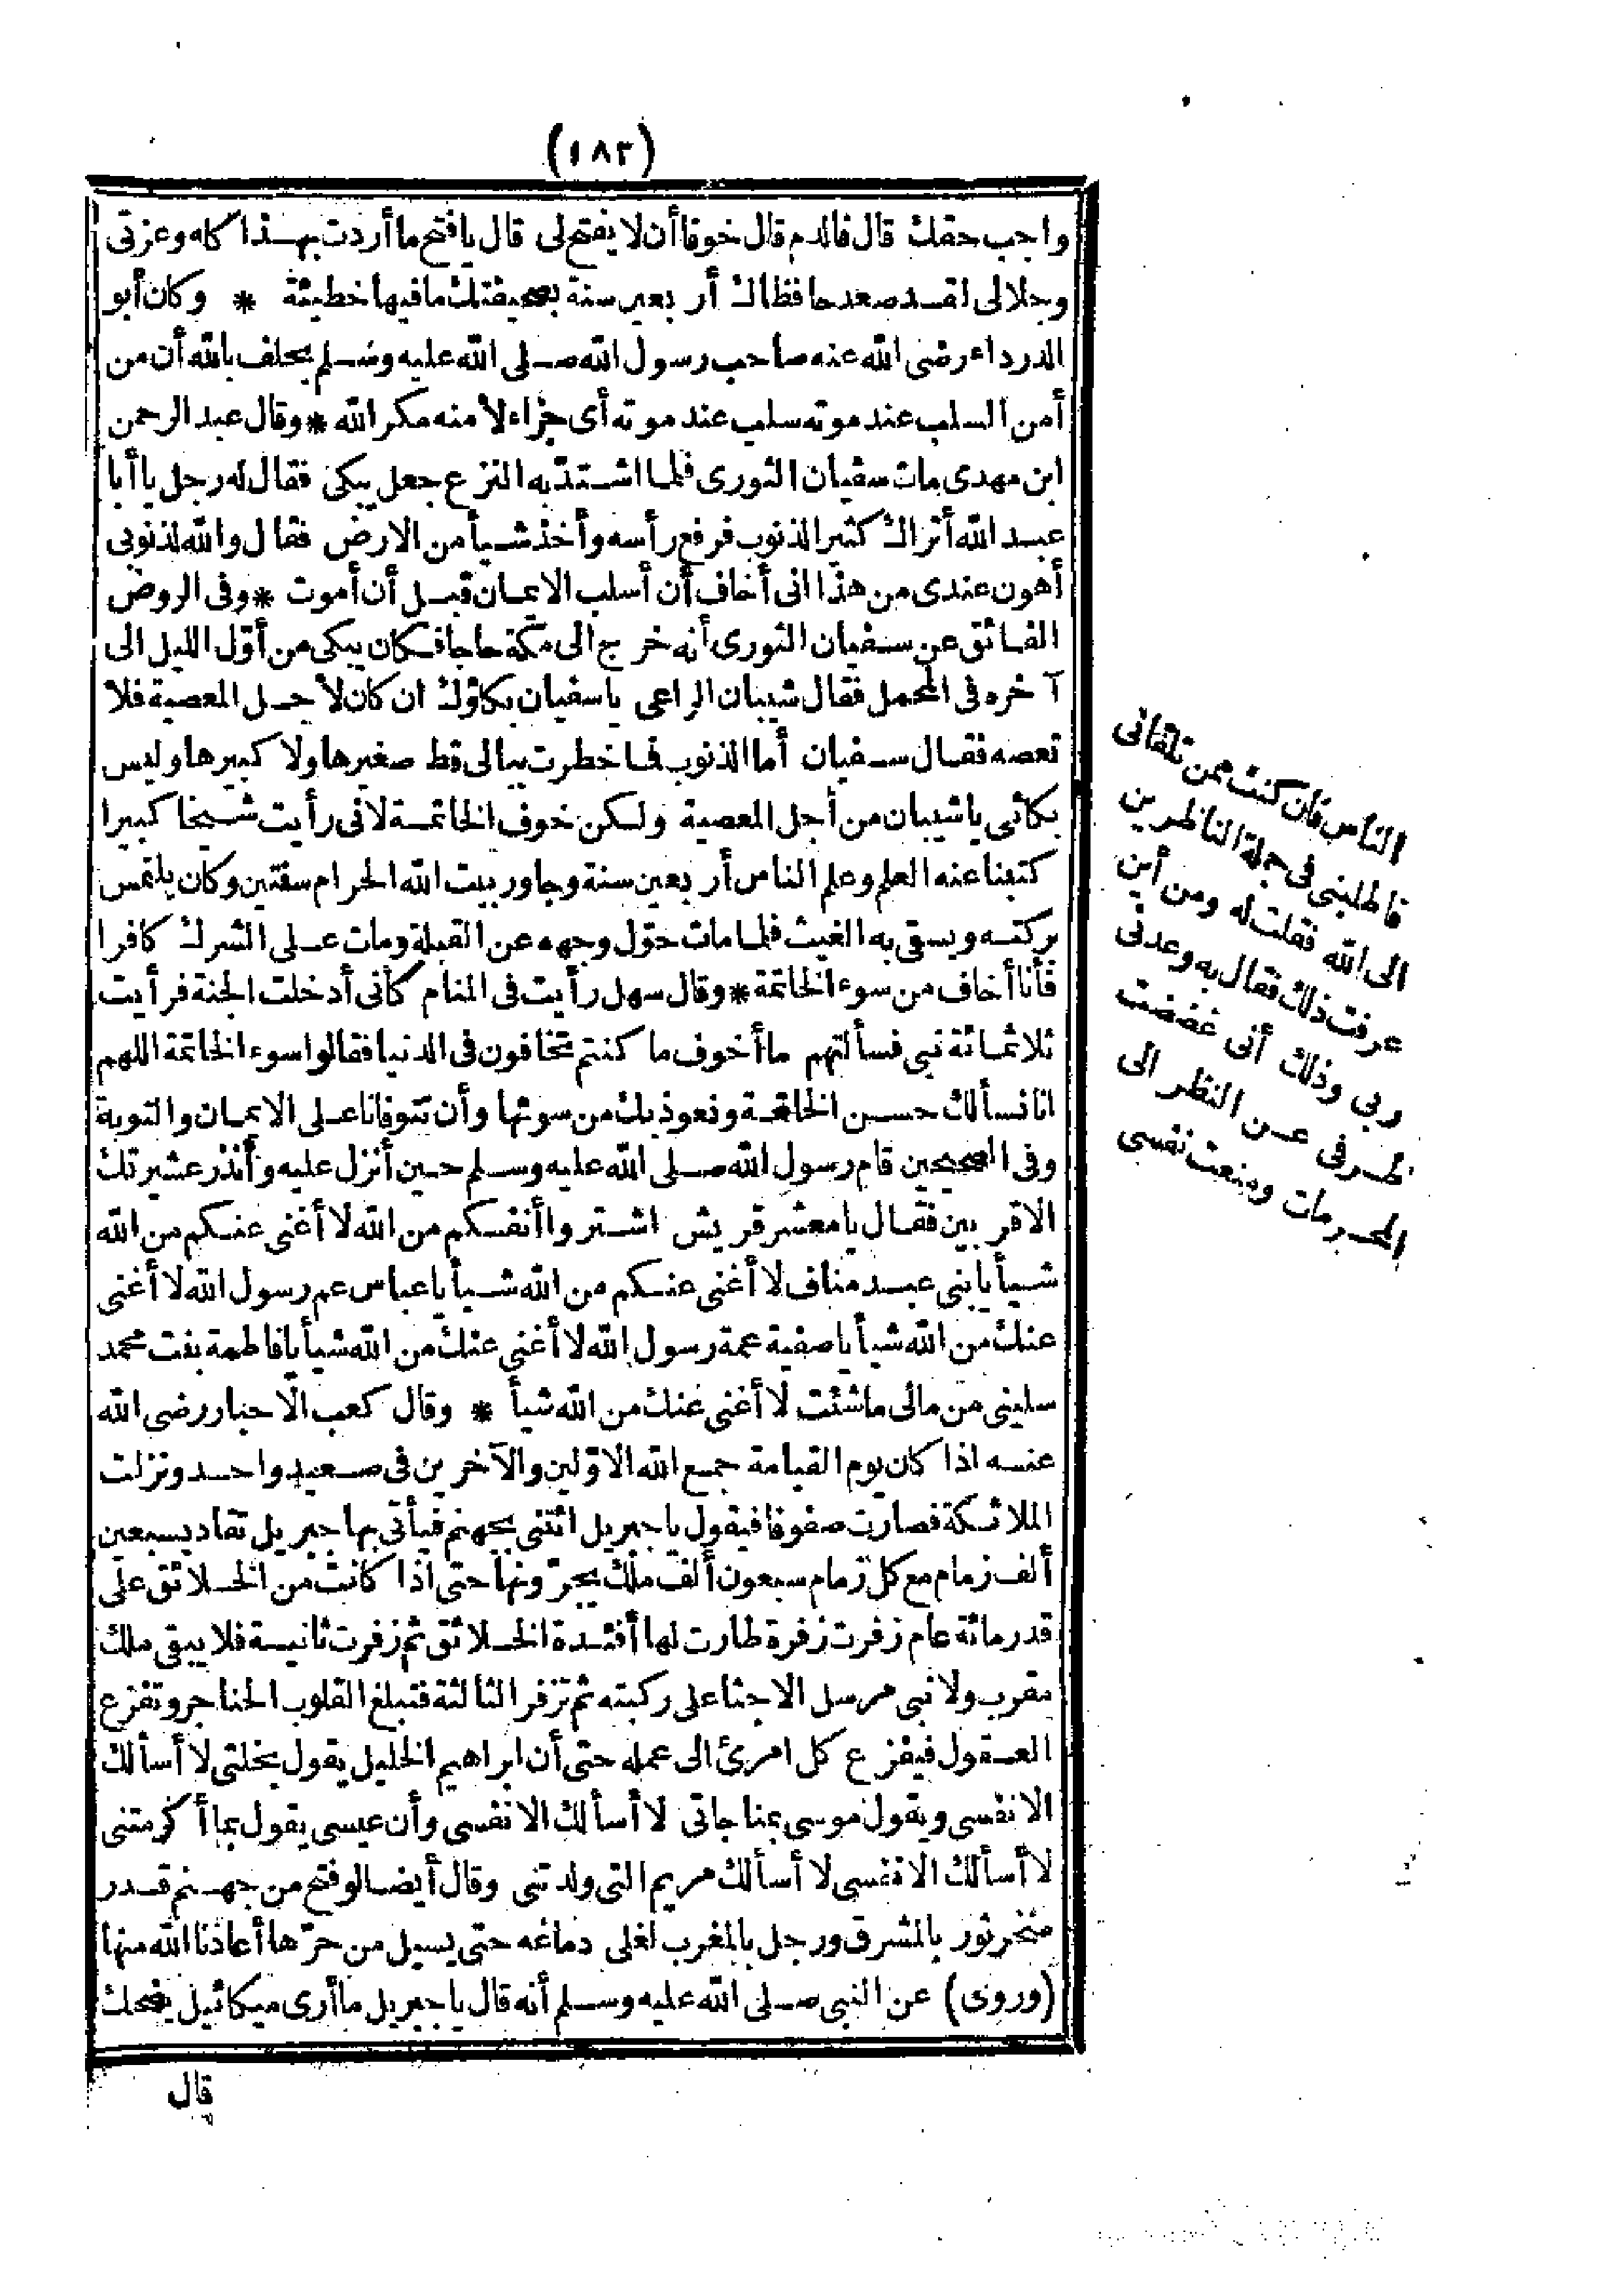 (١٨٢)
واجب حقك قال فالدم قال خوفا أن لا يفتح لى قال يا فتح ما أردت بهذا كله وعزتى
وجلالى لقد صعد حافظاك أربعين سنة بصحيفتك ما فيها خطيئة * وكان أبو
الدرداء رضى الله عنه صاحب رسول الله صلى الله عليه وسلم يحلف بالله أن من
أمن السلب عند موته سلب عند موته أى جزاء لأمنه مكر الله * وقال عبد الرحمن
ابن مهدى مات سفيان الثورى فلما اشتد به النزع جعل يبكى فقال له رجل يا أبا
عبد الله أتراك كثير الذنوب فرفع رأسه وأخذ شيأ من الارض فقال والله لذنوبى
أهون عندى من هذا انى أخاف أن أسلب الايمان قبل أن أموت * وفى الروض
الفائق عن سفيان الثورى أنه خرج الى مكة حاجا فكان يبكى من أوّل الليل الى
آخره فى المحمل فقال شيبان الراعى يا سفيان بكاؤك ان كان لأجل المعصية فلا
تعصه فقال سفيان أما الذنوب فما خطرت ببالى قط صغيرها ولا كبيرها وليس
بكائى يا شيبان من أجل المعصية ولكن خوف الخاتمة لانى رأيت شيخا كبيرا
كتبنا عنه العلم وعلم الناس أربعين سنة وجاور بيت الله الحرام سنتين وكان يلتمس
بركته ويسقى به الغيث فلما مات حوّل وجهه عن القبلة ومات على الشرك كافرا
فأنا أخاف من سوء الخاتمة * وقال سهل رأيت فى المنام كأنى أدخلت الجنة فرأيت
ثلاثمائة نبى فسألتهم ما أخوف ما كنتم تخافون فى الدنيا فقالوا سوء الخاتمة اللهم
انا نسألك حسن الخاتمة ونعوذ بك من سوئها وأن تتوفانا على الايمان والتوبة
وفى الصحيحين قام رسول الله صلى الله عليه وسلم حين أنزل عليه وأنذر عشيرتك
الاقربين فقال يا معشر قريش اشتروا أنفسكم من الله لا أغنى عنكم من الله
شيأ يا بنى عبد مناف لا أغنى عنكم من الله شيأ يا عباس عم رسول الله لا أغنى
عنك من الله شيأ يا صفية عمة رسول الله لا أغنى عنك من الله شيأ يا فاطمة بنت محمد
سلينى من مالى ما شئت لا أغنى عنك من الله شيأ * وقال كعب الاحبار رضى الله
عنه اذا كان يوم القيامة جمع الله الاوّلين والآخرين فى صعيد واحد ونزلت
الملائكة فصارت صفوفا فيقول يا جبريل ائتنى بجهنم فيأتى بها جبريل تقاد بسبعين
ألف زمام مع كل زمام سبعون ألف ملك يجرّونها حتى اذا كانت من الخلائق على
قدر مائة عام زفرت زفرة طارت لها أفئدة الخلائق ثم زفرت ثانية فلا يبقى ملك
مقرب ولا نبى مرسل الا جثا على ركبته ثم تزفر الثالثة فتبلغ القلوب الحناجر وتفزع
العقول فيفزع كل امرئ الى عمله حتى أن ابراهيم الخليل يقول بخلتى لا أسألك
الا نفسى ويقول موسى بمناجاتى لا أسألك الا نفسى وأن عيسى يقول بما أكرمتنى
لا أسألك الا نفسى لا أسألك مريم التى ولدتنى وقال أيضا لو فتح من جهنم قدر
منخر ثور بالمشرق ورجل بالمغرب لغلى دماغه حتى يسيل من حرّها أعاذنا الله منها
(وروى) عن النبى صلى الله عليه وسلم أنه قال يا جبريل ما أرى ميكائيل يضحك
قال
الناس فان كنت ممن تلقانى
فاطلبنى فى جملة الناظرين
الى الله فقلت له ومن أين
عرفت ذلك فقال به وعدنى
ربى وذلك أنى غضضت
طرفى عن النظر الى
المحرمات ومنعت نفسى